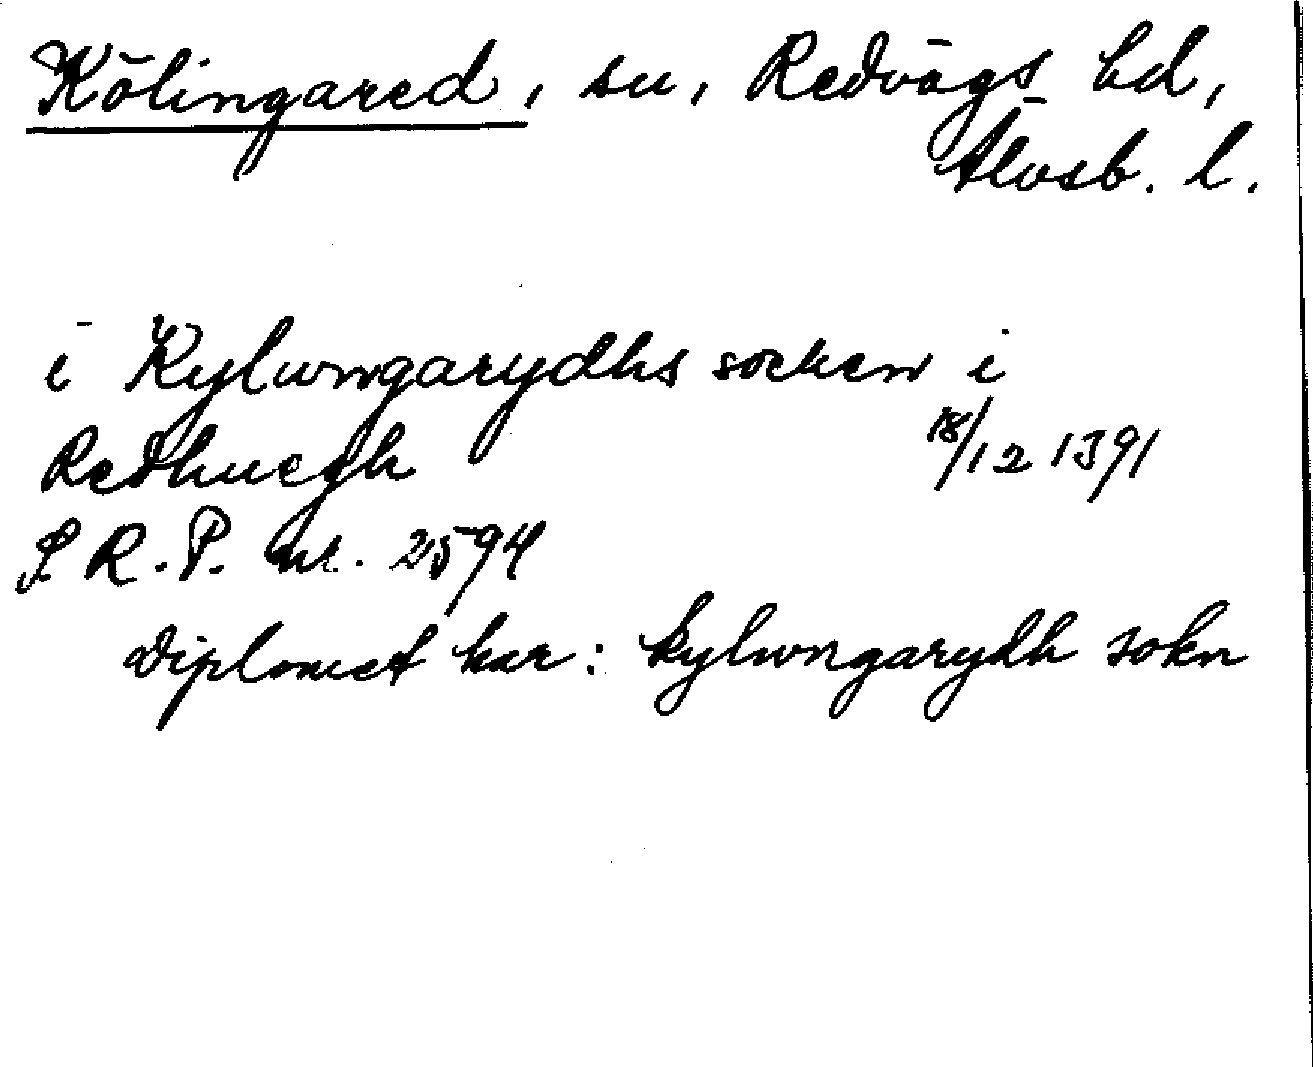 Kölingared, sn, Redvägs hd,
Älvsb. l.
i Kylwngarydhs socken i
Redhuegh 18/12 1391
S R. P. nr. 2594
diplomet har: kylwngarydh sokn